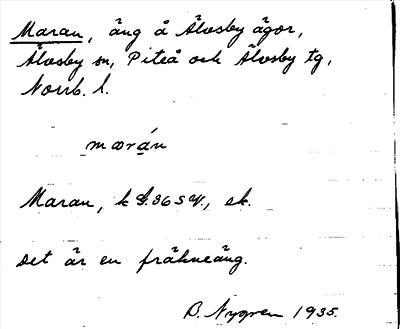 Maran, äng å Älvsby ägor,
Älvsby sn, Piteå och Älvsby tg,
Norrb. l.
mæràn
Maran, k G. 36 S V., ek.
Det är en fräkneäng.
B. Nygren 1935.